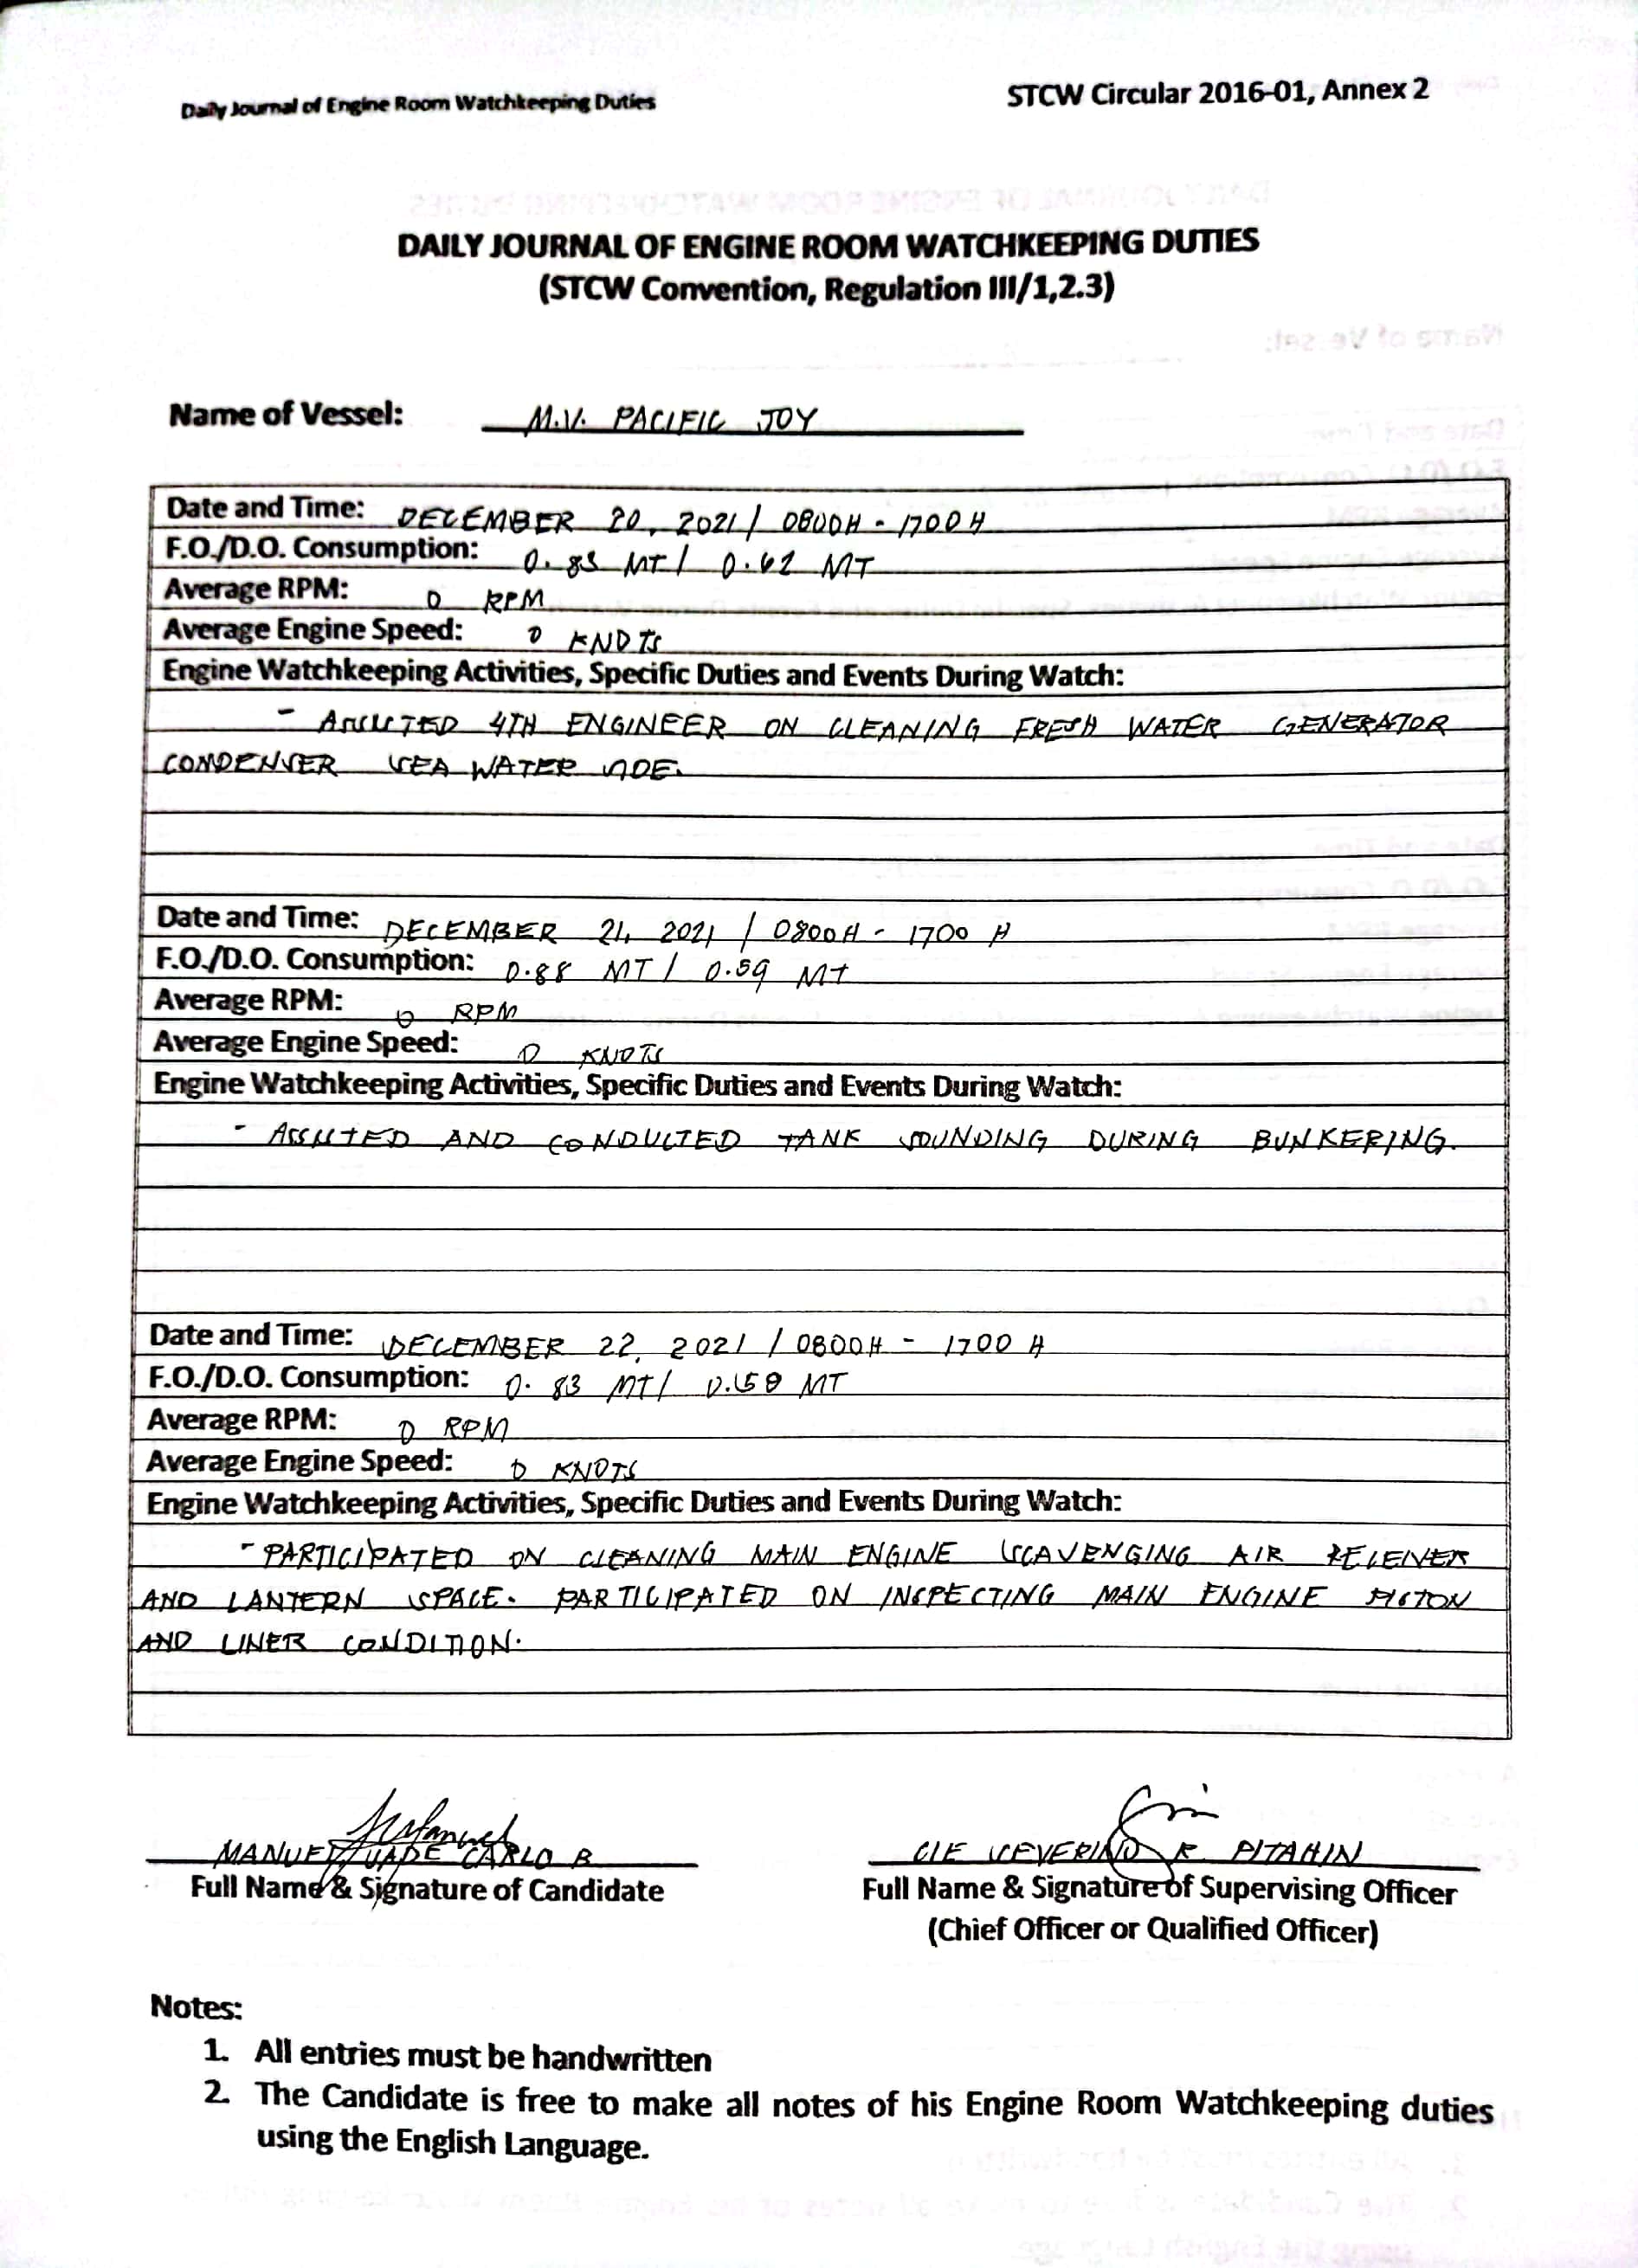 Daily Journal of Engine Room Watchkeeping Duties
STCW Circular 2016-01, Annex 2
DAILY JOURNAL OF ENGINE ROOM WATCHKEEPING DUTIES
(STCW Convention, Regulation III/1,2.3)
Name of Vessel: M.V. PACIFIC JOY
Date and Time: DECEMBER 20, 2021 / 0800H - 1700 H
F.O./D.O. Consumption: 0.83 MT / 0.62 MT
Average RPM: 0 RPM
Average Engine Speed: 0 KNOTS
Engine Watchkeeping Activities, Specific Duties and Events During Watch:
- ASSISTED 4TH ENGINEER ON CLEANING FRESH WATER GENERATOR
CONDENSER SEA WATER SIDE.
Date and Time: DECEMBER 21, 2021 / 0800H - 1700 H
F.O./D.O. Consumption: 0.88 MT / 0.59 MT
Average RPM: 0 RPM
Average Engine Speed: 0 KNOTS
Engine Watchkeeping Activities, Specific Duties and Events During Watch:
- ASSISTED AND CONDUCTED TANK SOUNDING DURING BUNKERING.
Date and Time: DECEMBER 22, 2021 / 0800H - 1700 H
F.O./D.O. Consumption: 0.83 MT / MT
Average RPM: 0 RPM
Average Engine Speed: 0 KNOTS
Engine Watchkeeping Activities, Specific Duties and Events During Watch:
- PARTICIPATED ON CLEANING MAIN ENGINE SCAVENGING AIR RECEIVER
AND LANTERN SPACE. PARTICIPATED ON INSPECTING MAIN ENGINE PISTON
AND LINER CONDITION.
MANUEL CARLO B
C/E SEVERINO R. PITAHIN
Full Name & Signature of Candidate
Full Name & Signature of Supervising Officer
(Chief Officer or Qualified Officer)
Notes:
1. All entries must be handwritten
2. The Candidate is free to make all notes of his Engine Room Watchkeeping duties
using the English Language.